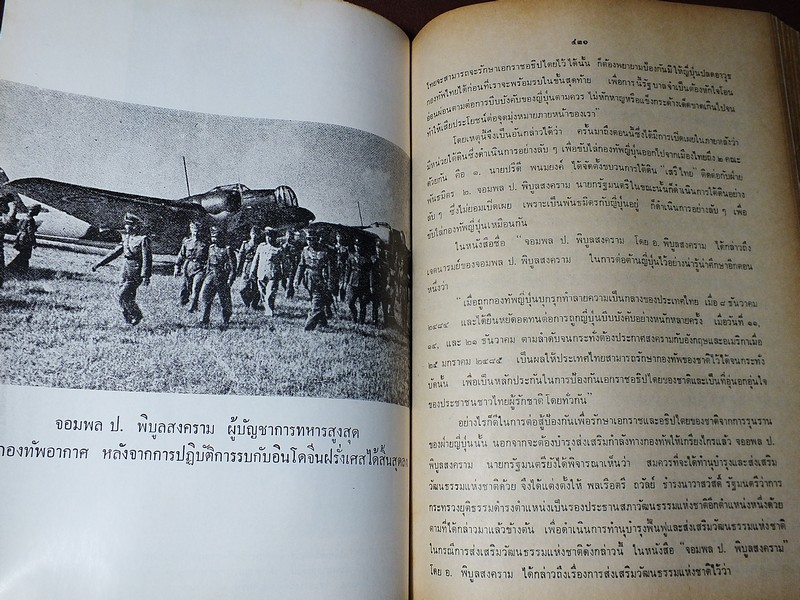 จอมพล ป. พิบูลสงคราม ผู้บัญชาการทหารสูงสุด
กองทัพอากาศ หลังจากการปฏิบัติการรบกับอินโดจีนฝรั่งเศสได้สิ้นสุดลง
๔๓๐
ไทยจะสามารถจะรักษาเอกราชอธิปไตยไว้ได้นั้น ก็ต้องพยายามป้องกันมิให้ญี่ปุ่นปลดอาวุธ
กองทัพไทยได้ก่อนที่เราจะพร้อมรบในขั้นสุดท้าย เพื่อการนี้รัฐบาลจำเป็นต้องหักใจโอน
อ่อนผ่อนตามต่อการบีบบังคับของญี่ปุ่นตามควร ไม่หักหาญหรือแข็งกระด้างเด็ดขาดเกินไปจน
ทำให้เสียประโยชน์ต่อจุดมุ่งหมายภายหน้าของเรา"
โดยเหตุนี้จึงเป็นอันกล่าวได้ว่า ครั้นมาถึงตอนนี้ซึ่งได้มีการเปิดเผยในภายหลังว่า
มีหน่วยใต้ดินซึ่งดำเนินการอย่างลับ ๆ เพื่อขับไล่กองทัพญี่ปุ่นออกไปจากเมืองไทยถึง ๒ คณะ
ด้วยกัน คือ ๑. นายปรีดี พนมยงค์ ได้จัดตั้งขบวนการใต้ดิน "เสรีไทย" ติดต่อกับฝ่าย
พันธมิตร ๒. จอมพล ป. พิบูลสงคราม นายกรัฐมนตรีในขณะนั้นก็ดำเนินการใต้ดินอย่าง
ลับ ๆ ซึ่งไม่ยอมเปิดเผย เพราะเป็นพันธมิตรกับญี่ปุ่นอยู่ ก็ดำเนินการอย่างลับ ๆ เพื่อ
ขับไล่กองทัพญี่ปุ่นเหมือนกัน
ในหนังสือชื่อ "จอมพล ป. พิบูลสงคราม โดย อ. พิบูลสงคราม ได้กล่าวถึง
เจตนารมย์ของจอมพล ป. พิบูลสงคราม ในการต่อต้านญี่ปุ่นไว้อย่างน่ารู้น่าศึกษาอีกตอน
หนึ่งว่า
"เมื่อถูกกองทัพญี่ปุ่นบุกรุกทำลายความเป็นกลางของประเทศไทย เมื่อ ๘ ธันวาคม
๒๔๘๔ และได้ยินหยัดอดทนต่อการถูกญี่ปุ่นบีบบังคับอย่างหนักหลายครั้ง เมื่อวันที่ ๑๑,
๑๔, และ ๒๑ ธันวาคม ตามลำดับจนกระทั่งต้องประกาศสงครามกับอังกฤษและอเมริกาเมื่อ
๒๕ มกราคม ๒๔๘๕ เป็นผลให้ประเทศไทยสามารถรักษากองทัพของชาติไว้ได้จนกระทั่ง
บัดนั้น เพื่อเป็นหลักประกันในการป้องกันเอกราชอธิปไตยของชาติและเป็นที่อุ่นอกอุ่นใจ
ของประชาชนชาวไทยผู้รักชาติ โดยทั่วกัน"
อย่างไรก็ดีในการต่อสู้ป้องกันเพื่อรักษาเอกราชและอธิปไตยของชาติจากการรุนราน
ของฝ่ายญี่ปุ่นนั้น นอกจากจะต้องบำรุงส่งเสริมกำลังทางกองทัพให้เกรียงไกรแล้ว จออพล ป.
พิบูลสงคราม นายกรัฐมนตรียังได้พิจารณาเห็นว่า สมควรที่จะได้ทำนุบำรุงและส่งเสริม
วัฒนธรรมแห่งชาติด้วย จึงได้แต่งตั้งให้ พลเรือตรี ถวัลย์ ธำรงนาวาสวัสดิ์ รัฐมนตรีว่าการ
กระทรวงยุติธรรมดำรงตำแหน่งเป็นรองประธานสภาวัฒนธรรมแห่งชาติอีกตำแหน่งหนึ่งด้วย
ตามที่ได้กล่าวมาแล้วข้างต้น เพื่อดำเนินการทำนุบำรุงฟื้นฟูและส่งเสริมวัฒนธรรมแห่งชาติ
ในกรณีการส่งเสริมวัฒนธรรมแห่งชาติดังกล่าวนี้ ในหนังสือ "จอมพล ป. พิบูลสงคราม"
โดย อ. พิบูลสงคราม ได้กล่าวถึงเรื่องการส่งเสริมวัฒนธรรมแห่งชาติไว้ว่า